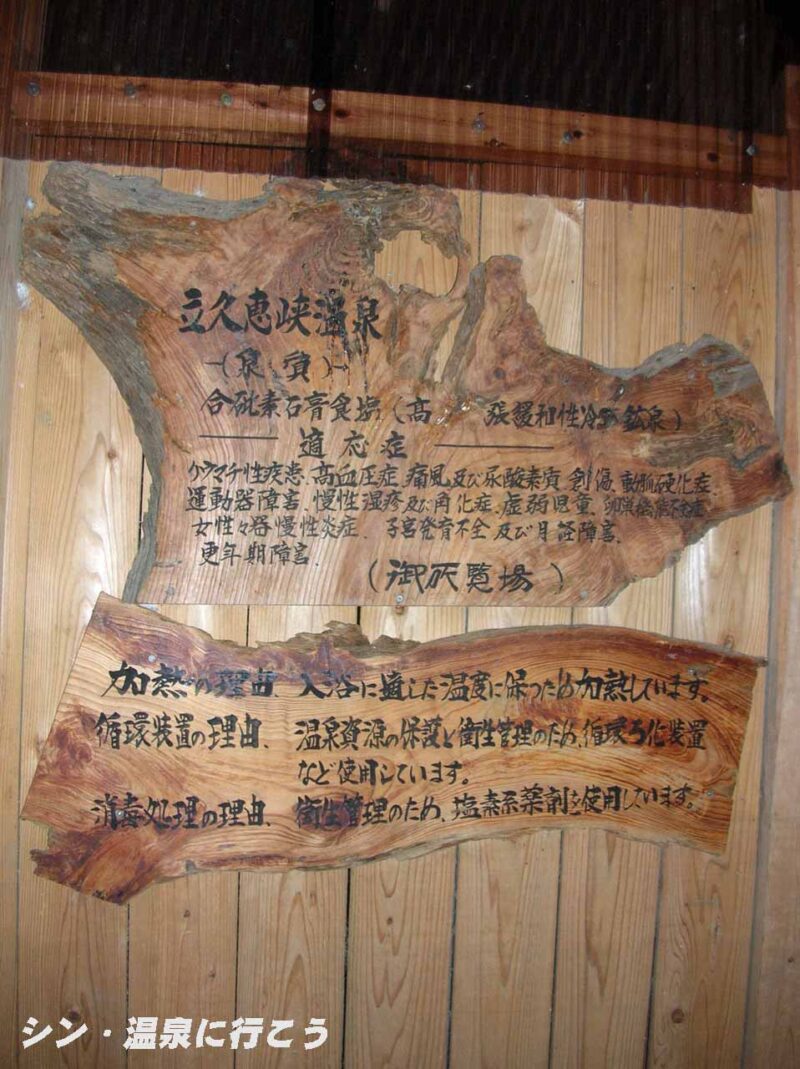 立久恵峡温泉
(泉質)
含砒素石膏食塩(高 張緩和性冷 鉱泉)
適応症
リウマチ性疾患、高血圧症、痛風及び尿酸素質、創傷、動脈硬化症、
運動器障害、慢性湿疹及び角化症、虚弱児童、卵巣機能不全症、
女性々器慢性炎症、子宮発育不全及び月経障害、
更年期障害、
(御天覧場)
加熱の理由、入浴に適した温度に保つため加熱しています。
循環装置の理由、温泉資源の保護と衛生管理のため、循環ろ化装置
など使用しています。
消毒処理の理由、衛生管理のため、塩素系薬剤を使用しています。
シン・温泉に行こう